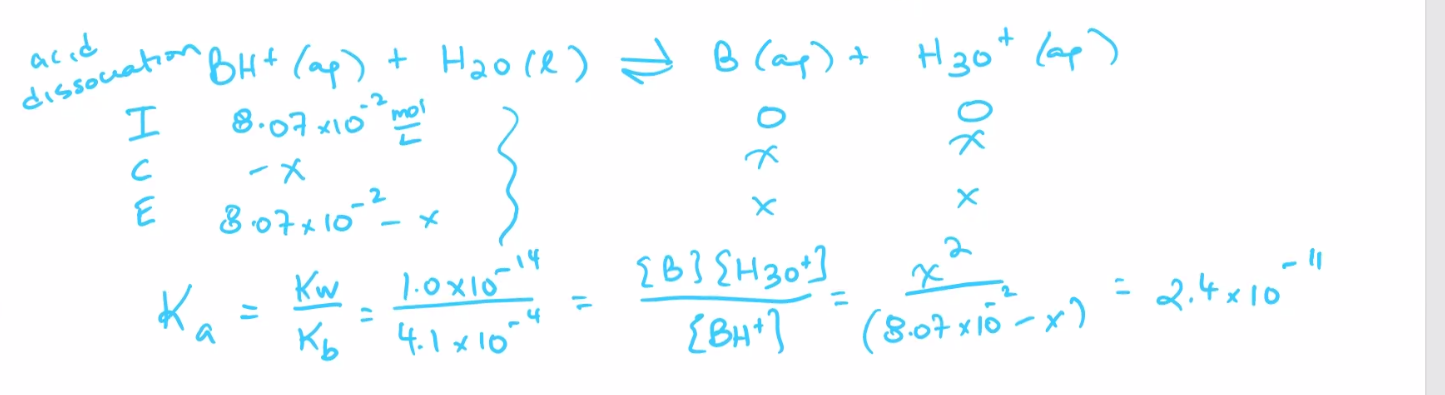 acid
dissociation BH+ (aq) + H2O (l) ⇌ B (aq) + H3O+ (aq)
I 8.07 x10^-2 mol/L 0 0
C -x x x
E 8.07 x 10^-2 - x x x
Ka = Kw/Kb = 1.0x10^-14 / 4.1 x 10^-4 = [B][H3O+] / [BH+] = x^2 / (8.07 x 10^-2 - x) = 2.4 x 10^-11